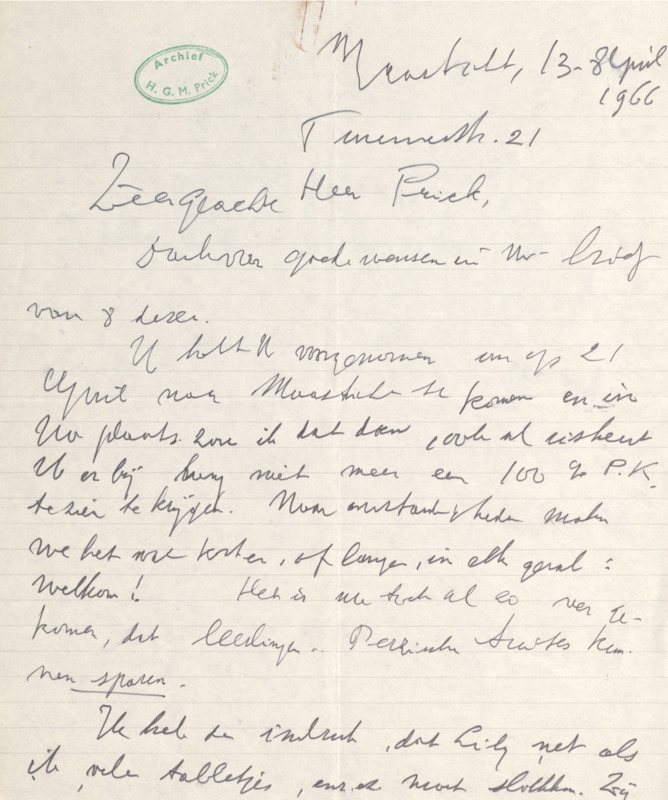 Archief
H. G. M. Prick
Maastricht, 13-April
1966
21
Zeergeachte Heer Prick,
Dank voor goede wensen in Uw brief
van 8 dezer.
U hebt U voorgenomen om op 21
April naar Maastricht te komen en in
Uw plaats zou ik dat doen, ook al riskeert
U er bij mij niet meer een 100 % P.K.
te zien te krijgen. Naar omstandigheden maken
we het wat korter, of langer, in elk geval:
Welkom! Het is nu toch al zo ver ge-
komen, dat leerlingen kun-
nen sparen.
Ik heb de indruk, dat Lily, net als
ik, vele tabletjes, enz. moet slikken. Zij